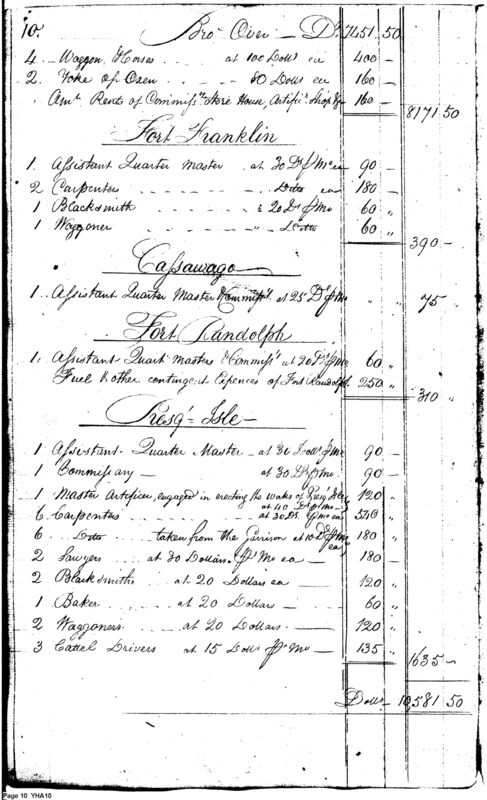 10. Bro.t Over — D.s 7451 50
4 Waggon Horses at 100 Dolls ea 400 —
2 Yoke of Oxen 80 Dolls ea 160 —
Am.t Rents of Commiss.s Store House, Artific.s Shop &c 160 — 8171 50
Fort Franklin
1 Assistant Quarter Master at 30 D.s p Mo ea 90 —
2 Carpenters Ditto ea 180 —
1 Blacksmith a 20 D.s p Mo 60 "
1 Waggoner " Ditto 60 "
390 —
Cassawago
1 Assistant Quarter Master & Commiss.y at 25 D.s p Mo " " 75 "
Fort Randolph
1 Assistant Quart.r Master & Commiss.y at 20 D.s p Mo 60 "
Fuel & other contingent Expences of Fort Randolph 250 "
310 "
Presq.e Isle —
1 Assistant Quarter Master — at 30 Dolls p Mo 90 —
1 Commissary — at 30 D.s p Mo 90 —
1 Master Artificer, engaged in erecting the works of Presq.e Isle at 40 D.s p Mo 120 "
6 Carpenters at 30 D.s p Mo ea 540 "
6 Ditto taken from the Garrison at 10 D.s p Mo ea 180 "
2 Sawyers at 30 Dollars p Mo ea — 180 —
2 Blacksmiths at 20 Dollars ea — 120 "
1 Baker at 20 Dollars — 60 "
2 Waggoners at 20 Dollars — 120 "
3 Cattel Drivers at 15 Doll.s p Mo — 135 "
1635 —
Dolls — 10,581 50
Page 10 YHA10